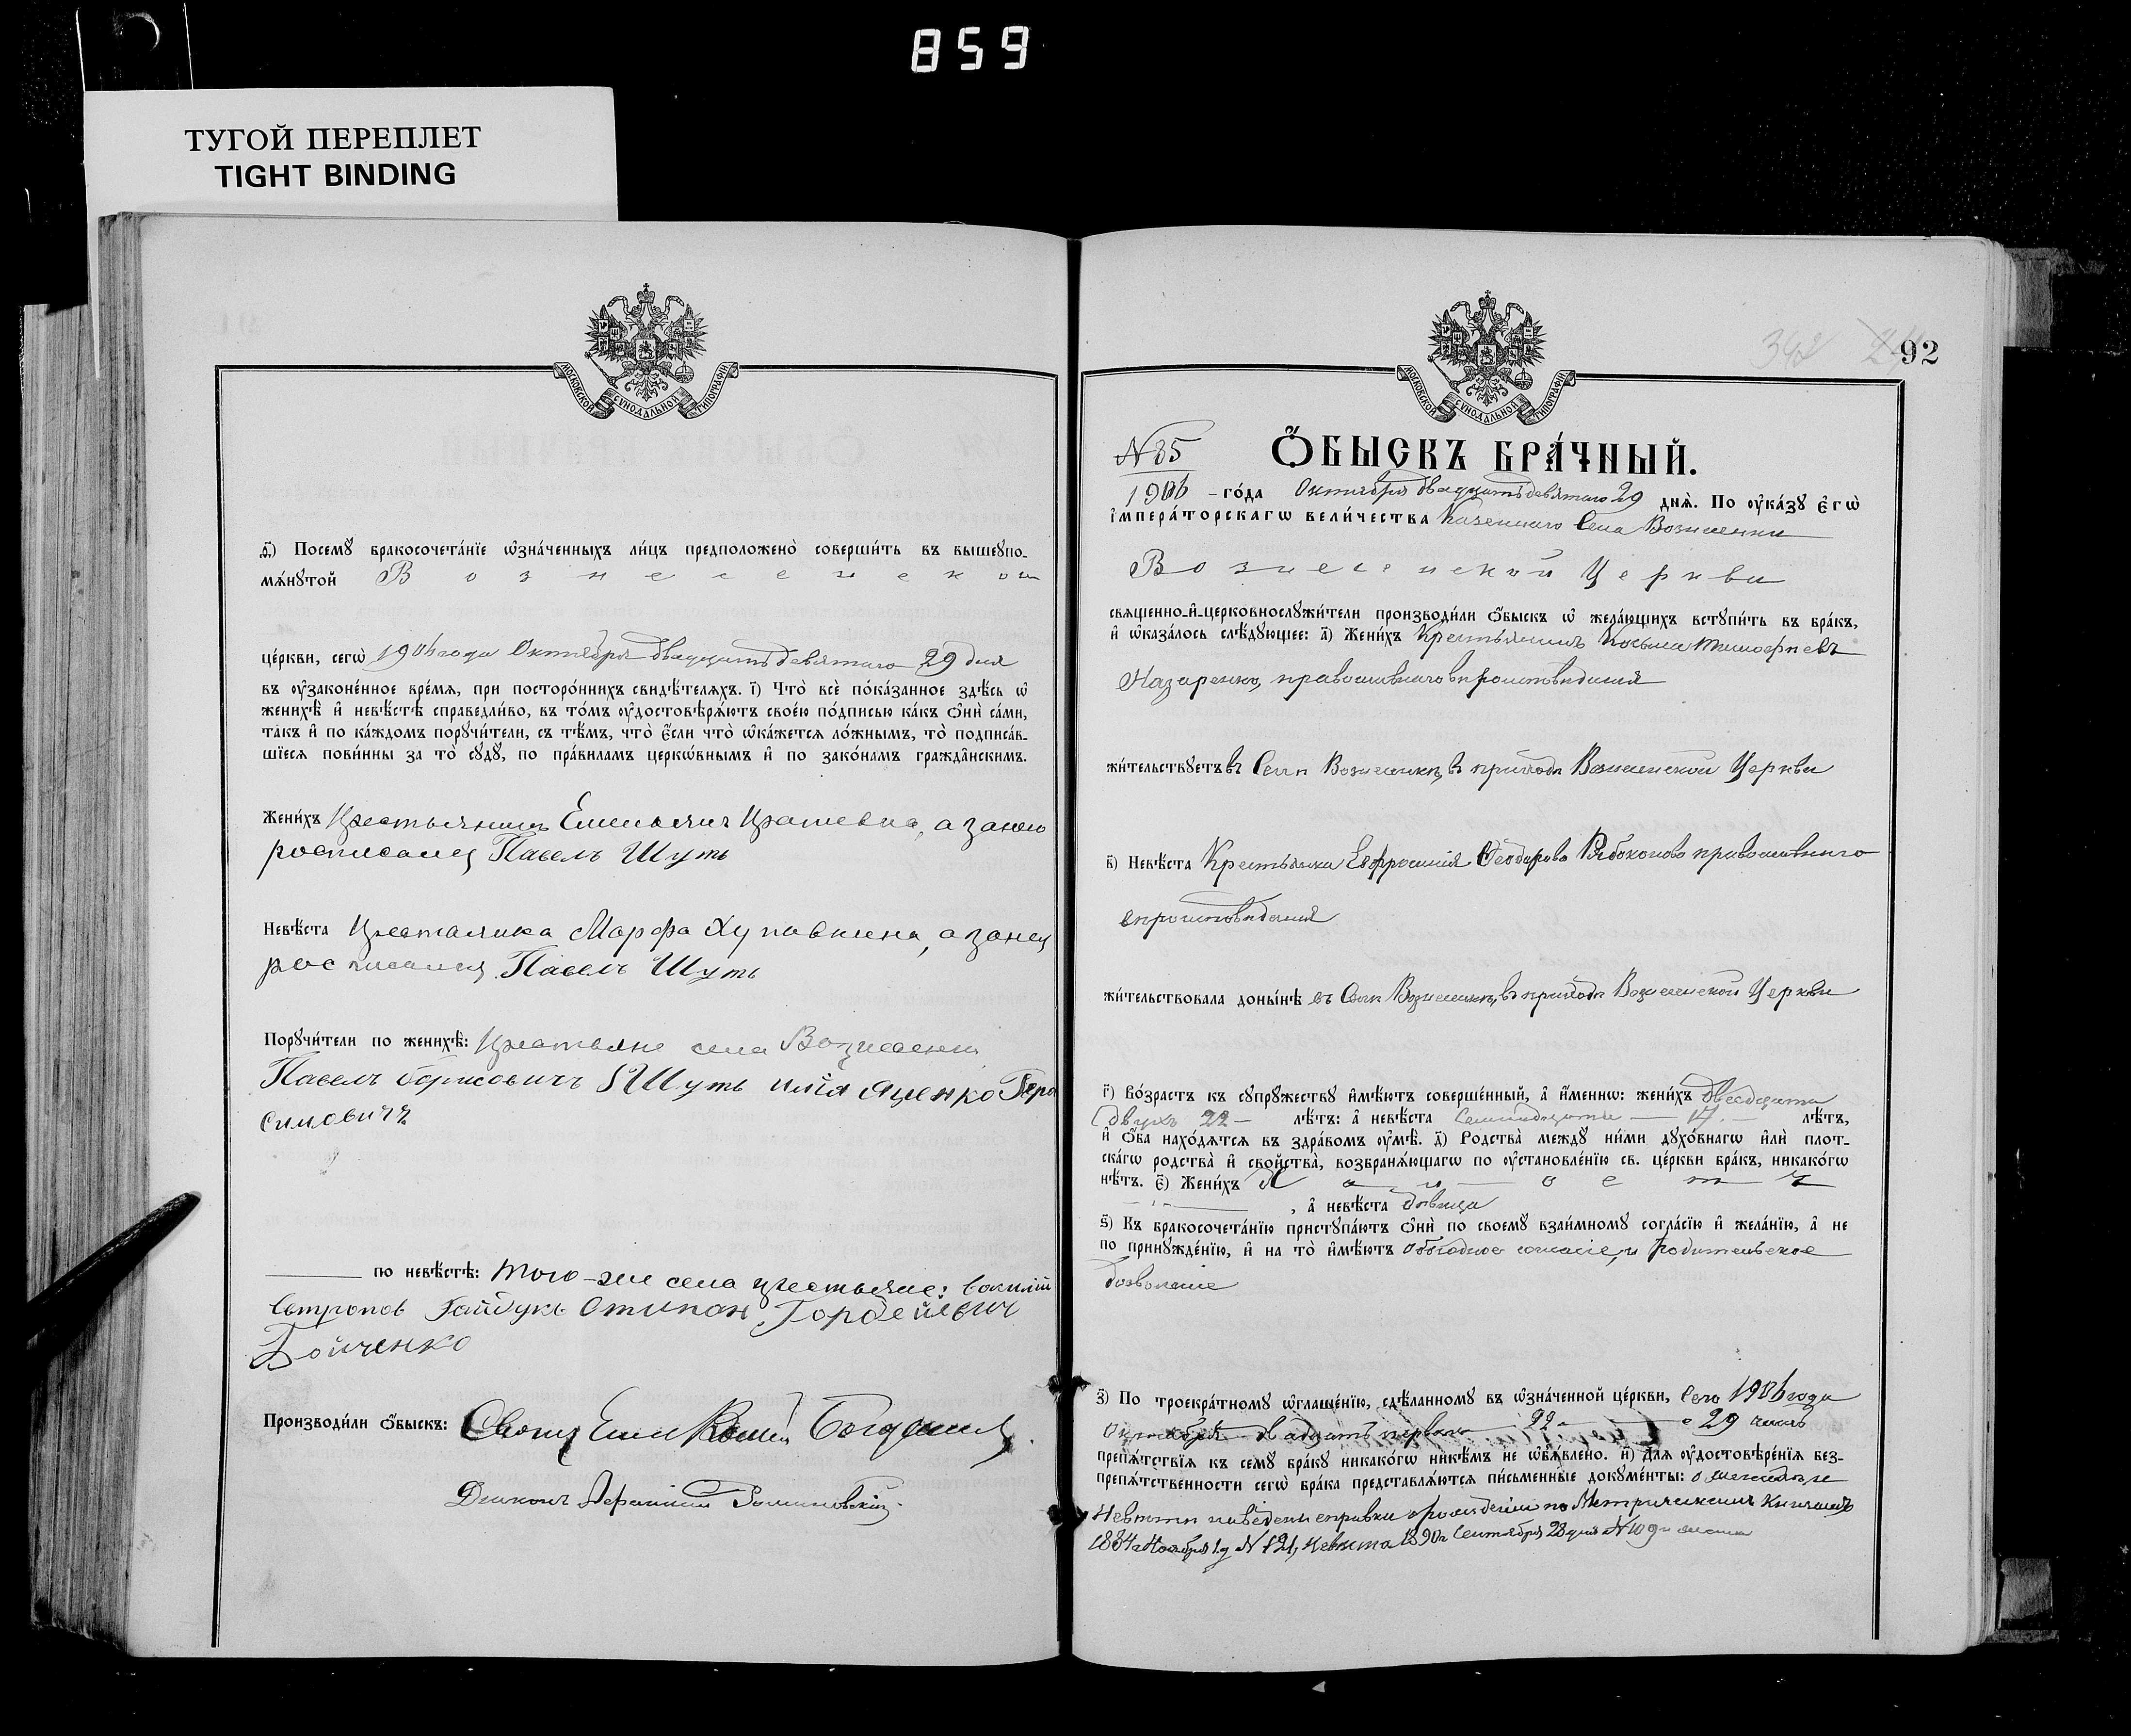 859
ТУГОЙ ПЕРЕПЛЕТ
TIGHT BINDING
МОСКОВСКОЙ СѴНОДАЛЬНОЙ ТИПОГРАФІИ
ѳ҃) Посемꙋ̀ бракосочета́нїе ѡ҆зна́ченныхъ ли́цъ предположено̀ соверши́ть въ вышеꙋпо-
мѧ́нꙋтой Вознесенской
це́ркви, сегѡ̀ 1906 года Октября двадцать девятаго 29 дня
въ ᲂу҆зако́ненное вре́мѧ, при посторо́ннихъ свидѣ́телѧхъ. і҃) Что̀ всѐ пока́занное здѣ́сь ѡ҆
женихѣ̀ и҆ невѣ́стѣ справедли́во, въ то́мъ ᲂу҆достовѣрѧ́ютъ свое́ю по́дписью ка́къ ѻ҆нѝ са́ми,
та́къ и҆ по ка́ждомъ порꙋчи́тели, съ тѣ́мъ, что̀ є҆́сли что̀ ѡ҆ка́жетсѧ ло́жнымъ, то̀ подписа́в-
шїесѧ пови́нны за то̀ сꙋдꙋ̀, по пра́виламъ церкѡ́внымъ и҆ по зако́намъ гражда́нскимъ.
Жени́хъ Крестьянинъ Емельянъ а занего
росписался Павелъ Шуть
Невѣ́ста Крестьянка Марфа а занея
росписался Павелъ Шуть
Порꙋчи́тели по женихѣ̀: Крестьяне села Вознесенки
Павелъ Борисовичъ Шуть Яценко Гера
симовичъ
по невѣ́стѣ: Того-же села крестьяне:
Гайдукъ Стипан Гордейевич
Бойченко
Производи́ли ѻ҆́быскъ:
Діаконъ
92
№ 85
Ѻ҆́БЫСКЪ БРА́ЧНЫЙ.
1906 го́да Октября двадцать девятаго 29 днѧ̀. По ᲂу҆ка́зꙋ є҆гѡ̀
і҆мпера́торскагѡ вели́чества Казеннаго Села Вознесенки
Вознесенской Церкви
свѧще́нно-и҆-церковнослꙋжи́тели производи́ли ѻ҆́быскъ ѡ҆ жела́ющихъ встꙋпи́ть въ бра́къ,
и҆ ѡ҆каза́лось слѣ́дꙋющее: а҃) Жени́хъ Крестьянинъ Косьма Тимофѣевъ
Назаренко, православнаго вѣроисповѣданія
жи́тельствꙋетъ въ Селѣ Вознесенкѣ, въ приходѣ Вознесенской Церкви
в҃) Невѣ́ста Крестьянка Евфросинія Ѳеодорова Рябоконова православнаго
вѣроисповѣданія
жи́тельствовала доны́нѣ въ Селѣ Вознесенкѣ, въ приходѣ Вознесенской Церкви
г҃) Во́зрастъ къ сꙋпрꙋ́жествꙋ и҆мѣ́ютъ соверше́нный, а҆ и҆́меннѡ: жени́хъ двадцати
двухъ 22 лѣ́тъ: а҆ невѣ́ста Семнадцати 17 лѣ́тъ,
и҆ ѻ҆́ба нахо́дѧтсѧ въ здра́вомъ ᲂу҆мѣ̀. д҃) Родства̀ междꙋ̀ ни́ми дꙋхо́внагѡ и҆лѝ пло́т-
скагѡ родства̀ и҆ сво́йства̀, возбранѧ́ющагѡ по ᲂу҆становле́нїю св. це́ркви бра́къ, никако́гѡ
нѣ́тъ. є҃) Жени́хъ Холостъ
, а҆ невѣ́ста дѣвица
ѕ҃) Къ бракосочета́нїю пристꙋпа́ютъ ѻ҆нѝ по своемꙋ̀ взаи́мномꙋ согла́сїю и҆ жела́нїю, а҆ не
по принꙋжде́нїю, и҆ на то̀ и҆мѣ́ютъ обоюдное согласіе, и родительское
дозволеніе
з҃) По троекра́тномꙋ ѡ҆глаше́нїю, сдѣ́ланномꙋ въ ѡ҆зна́ченной це́ркви, Сего 1906 года
Октября 22 29 чиселъ
препѧ́тствїѧ къ семꙋ̀ бра́кꙋ никако́гѡ никѣ́мъ не ѡ҆б̾ѧ́влено. и҃) Длѧ̀ ᲂу҆достовѣре́нїѧ без-
препѧ́тственности сегѡ̀ бра́ка представлѧ́ютсѧ пи́сьменные докꙋме́нты: о женихѣ и
Невѣстѣ наведены справки о рожденіи по Метрическимъ Книгамъ
1884 г. Ноября 1 д. № 121, невѣста 1890 г. Сентября 28 дня № 109